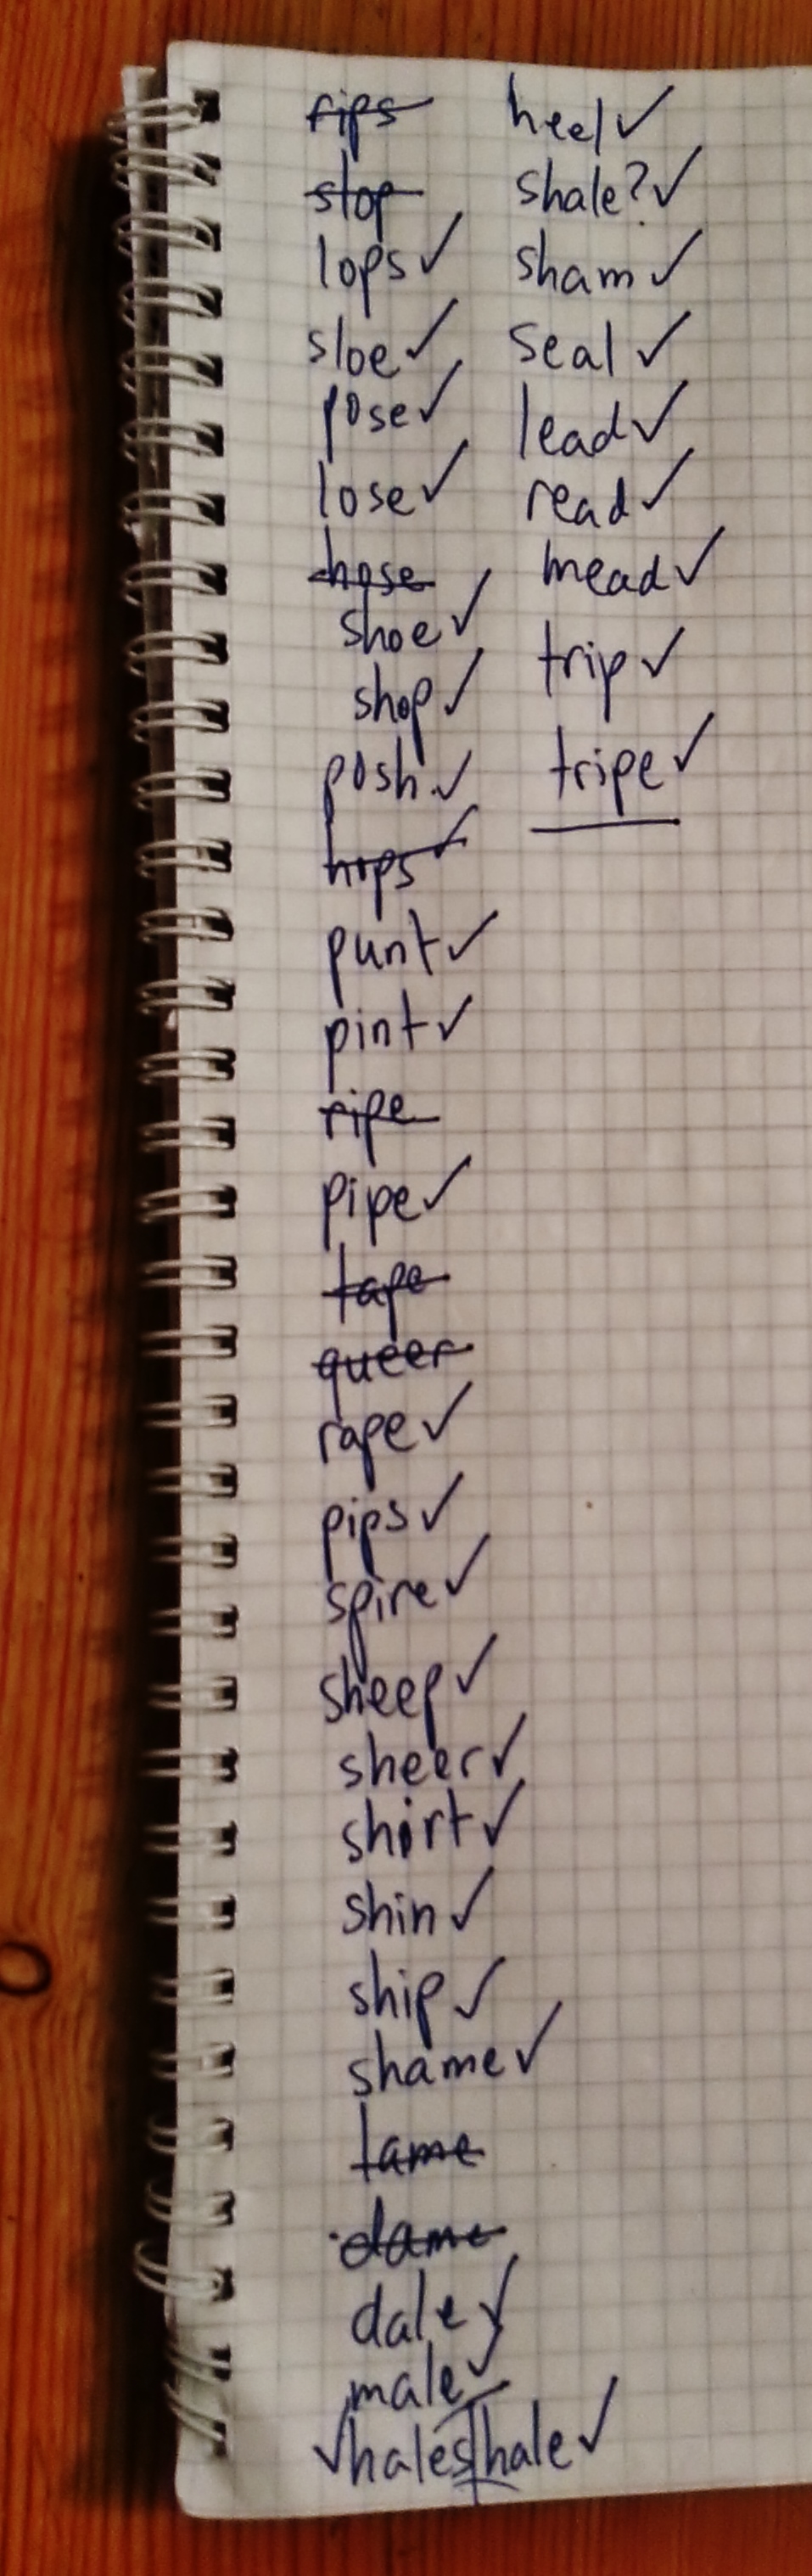 rips
slop
lops ✓
sloe ✓
pose ✓
lose ✓
hose
shoe ✓
shop ✓
posh ✓
hops ✓
punt ✓
pint ✓
ripe
pipe ✓
tape
queer
rape ✓
pips ✓
spire ✓
sheep ✓
sheer ✓
shirt ✓
shin ✓
ship ✓
shame ✓
tame
dame
dale ✓
male ✓
✓ hales|hale ✓
heel ✓
shale? ✓
sham ✓
seal ✓
lead ✓
read ✓
mead ✓
trip ✓
tripe ✓